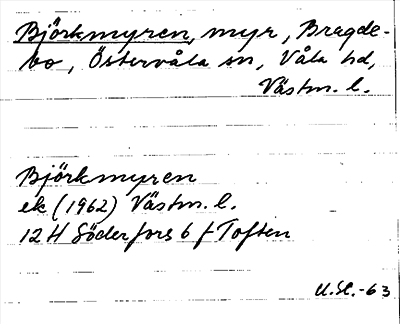 Björkmyren, myr, Bragde-
bo, Östervåla sn, Våla hd,
Västm. l.
Björkmyren
ek (1962) Västm. l.
12 H Söderfors 6 f Toften
U.H. -63